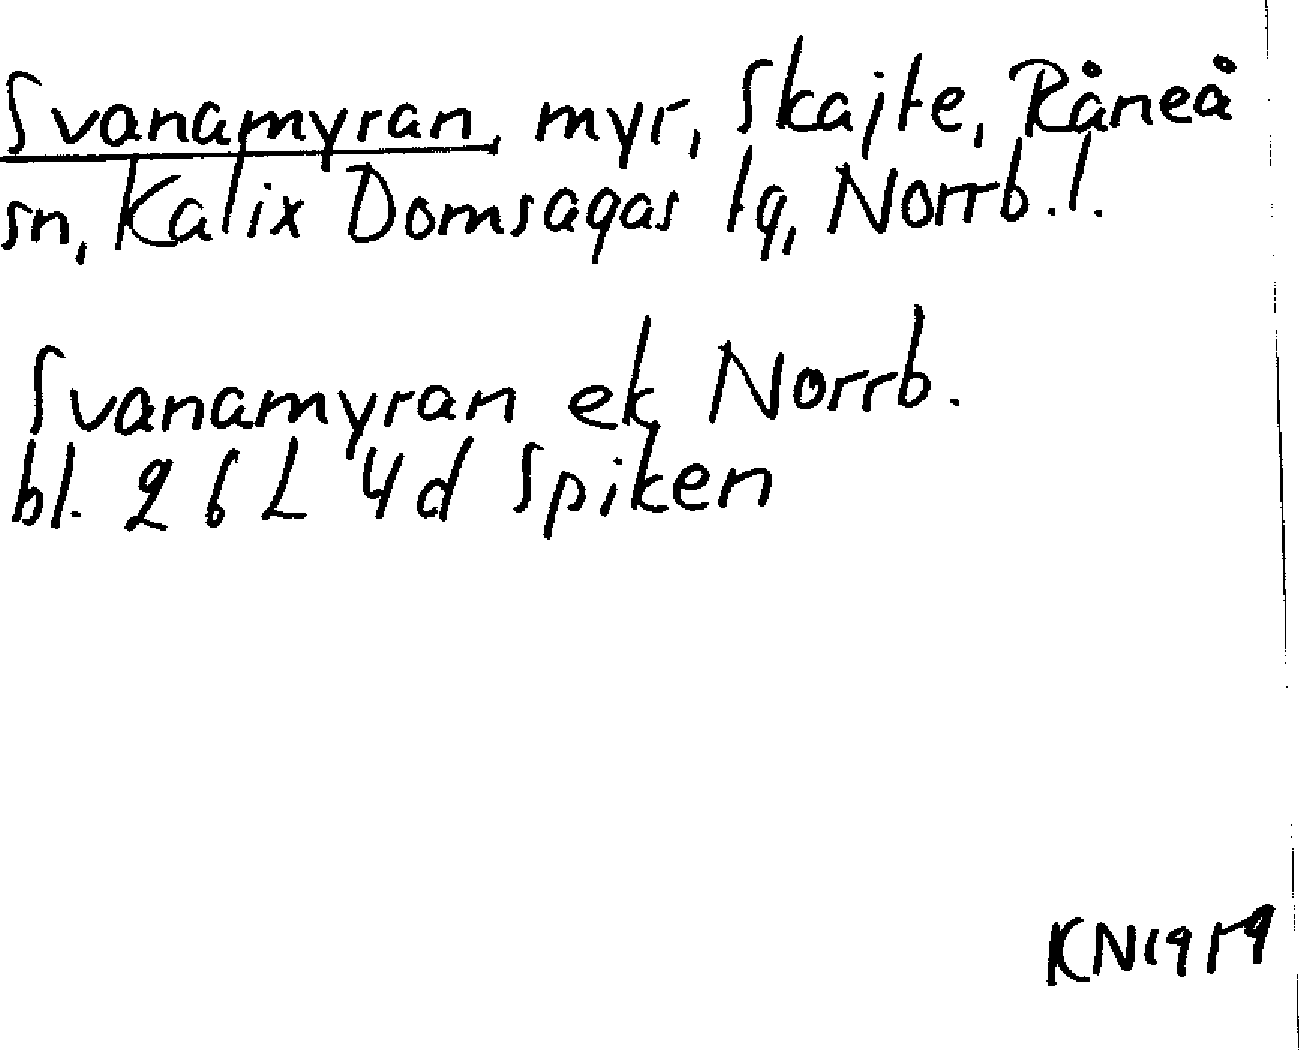 Svanamyran, myr, Skajte, Råneå
sn, Kalix Domsagas tg, Norrb. l.
Svanamyran ek Norrb.
bl. 26 L 4d Spiken